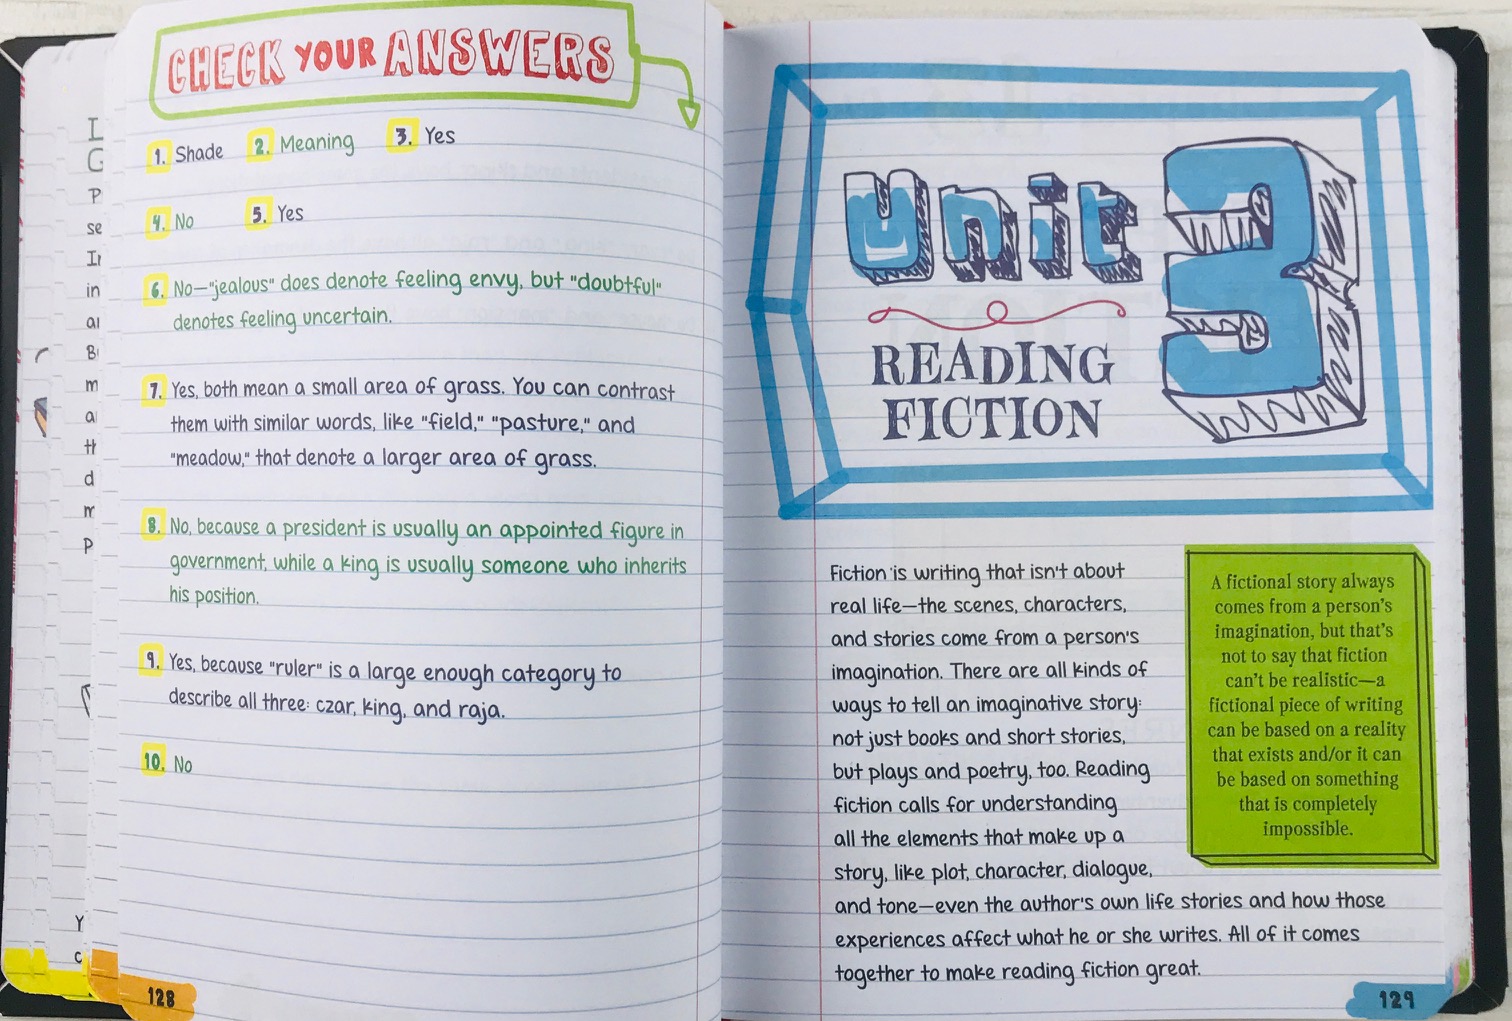 CHECK YOUR ANSWERS
1. Shade 2. Meaning 3. Yes
4. No 5. Yes
6. No—"jealous" does denote feeling envy, but "doubtful"
denotes feeling uncertain.
7. Yes, both mean a small area of grass. You can contrast
them with similar words, like "field," "pasture," and
"meadow," that denote a larger area of grass.
8. No, because a president is usually an appointed figure in
government, while a king is usually someone who inherits
his position.
9. Yes, because "ruler" is a large enough category to
describe all three: czar, king, and raja.
10. No
128
Unit 3
READING
FICTION
Fiction is writing that isn't about
real life—the scenes, characters,
and stories come from a person's
imagination. There are all kinds of
ways to tell an imaginative story:
not just books and short stories,
but plays and poetry, too. Reading
fiction calls for understanding
all the elements that make up a
story, like plot, character, dialogue,
and tone—even the author's own life stories and how those
experiences affect what he or she writes. All of it comes
together to make reading fiction great.
A fictional story always
comes from a person's
imagination, but that's
not to say that fiction
can't be realistic—a
fictional piece of writing
can be based on a reality
that exists and/or it can
be based on something
that is completely
impossible.
129